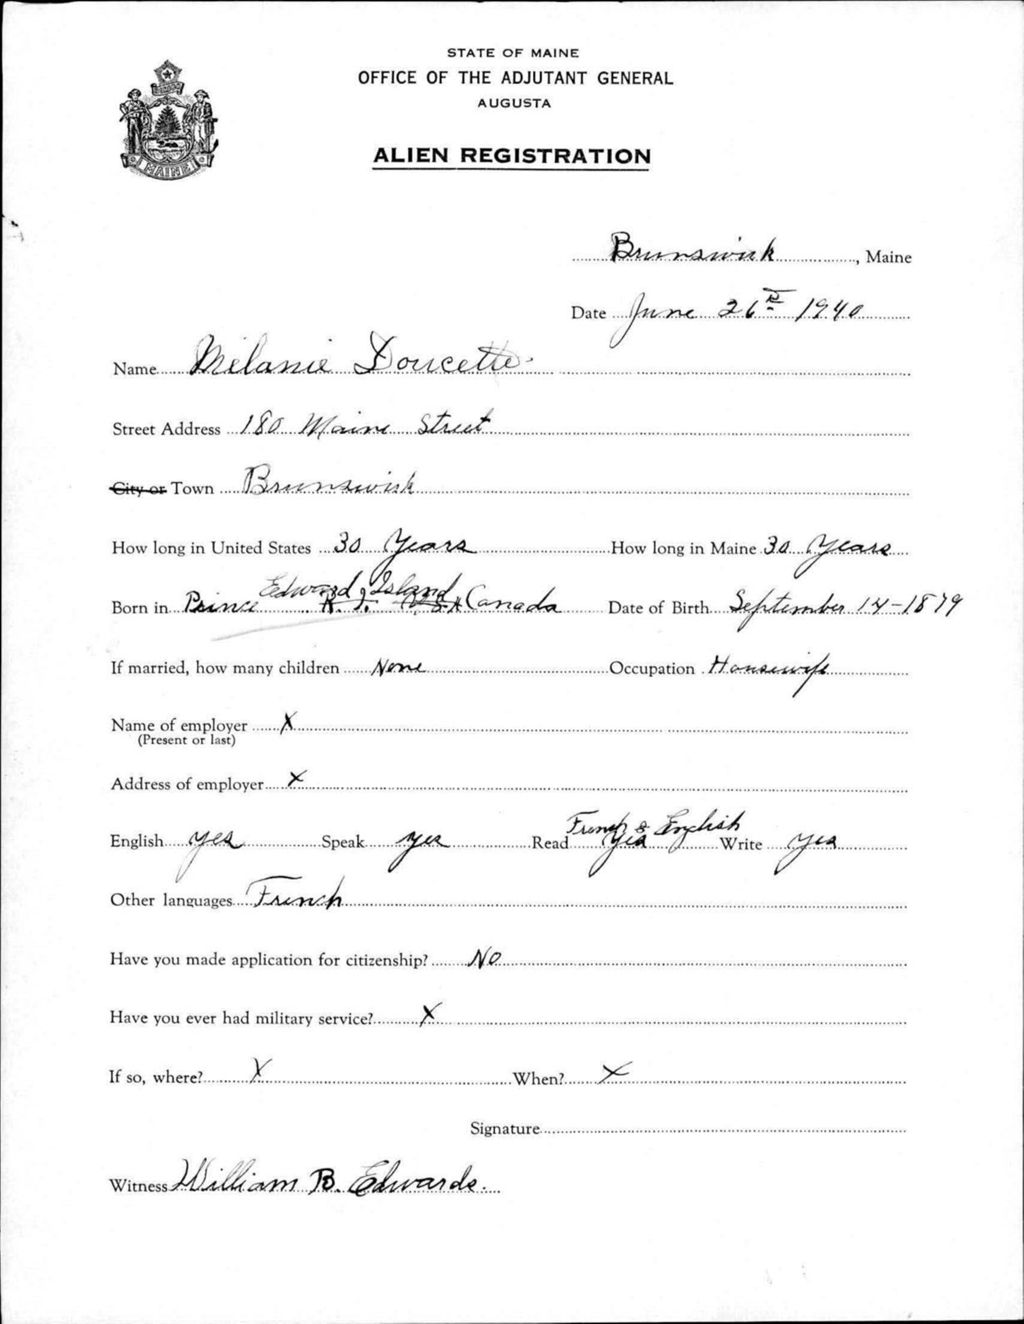 STATE OF MAINE
OFFICE OF THE ADJUTANT GENERAL
AUGUSTA
ALIEN REGISTRATION
MAINE
Brunswick, Maine
Date June 26 1940
Name Melanie Doucette
Street Address 180 Maine Street
City or Town Brunswick
How long in United States 30 Years How long in Maine 30 Years
Edward Island
Born in Prince Canada Date of Birth September 14-1879
If married, how many children None Occupation Housewife
Name of employer X
(Present or last)
Address of employer X
French & English
English yes Speak yes Read yes Write yes
Other languages French
Have you made application for citizenship? No
Have you ever had military service? X
If so, where? X When? X
Signature
Witness William B. Edwards.